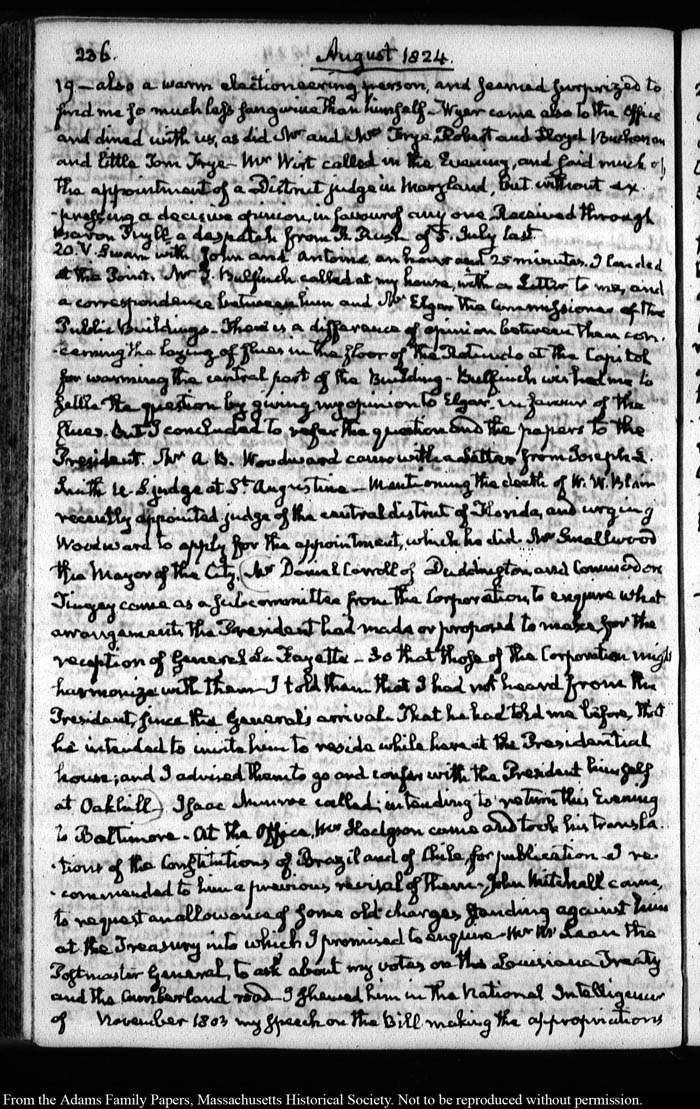 236.
August 1824.
19 — also a warm electioneering person, and seemed surprized to
find me so much less sanguine than himself — Wyer came also to the Office
and dined with us, as did Mr and Mrs Frye, Robert and Lloyd Buchanan
and little Tom Frye — Mr Wirt called in the Evening, and said much of
the appointment of a District judge in Maryland, but without ex-
-pressing a decisive opinion, in favour of any one. Received through
Baron Tuyll a despatch from R. Rush of 5. July last
20. V. Swam with John and Antoine an hour and 25 minutes. I landed
at the Point. Mr Bulfinch called at my house, with a Letter to me, and
a correspondence between him and Mr Elgar the Commissioner of the
Public Buildings — There is a difference of opinion between them con-
-cerning the laying of flues in the floor of the Rotundo at the Capitol
for warming the central part of the Building — Bulfinch wished me to
settle the question by giving my opinion to Elgar, in favour of the
flues. But I concluded to refer the question and the papers to the
President. Mr A. B. Woodward came with a Letter from Joseph L.
Smith U.S. judge at St. Augustine — Mentioning the death of W. W. Blair
recently appointed judge of the central district of Florida, and urging
Woodward to apply for the appointment, which he did. Mr Smallwood
the Mayor of the City, Mr Daniel Carroll of Duddington, and Commodore
Tingey came as a sub-committee from the Corporation, to enquire what
arrangements the President had made or proposed to make, for the
reception of General La Fayette — So that those of the Corporation might
harmonize with them — I told them that I had not heard from the
President, since the General's arrival. That he had told me before, that
he intended to invite him to reside while here at the Presidential
house; and I advised them to go and confer with the President himself
at Oakhill) Isaac Munroe called; intending to return this Evening
to Baltimore — At the Office, Mr Hodgson came and took his transla-
-tions of the Constitutions of Brazil and of Chile, for publication — I re-
-commended to him a previous revisal of them — John Mitchell came,
to request an allowance of some old charges standing against him
at the Treasury into which I promised to enquire — Mr McLean the
Postmaster General, to ask about my votes on the Louisiana Treaty
and the Cumberland road — I shewed him in the National Intelligencer
of November 1803 my speech on the Bill making the appropriations
From the Adams Family Papers, Massachusetts Historical Society. Not to be reproduced without permission.